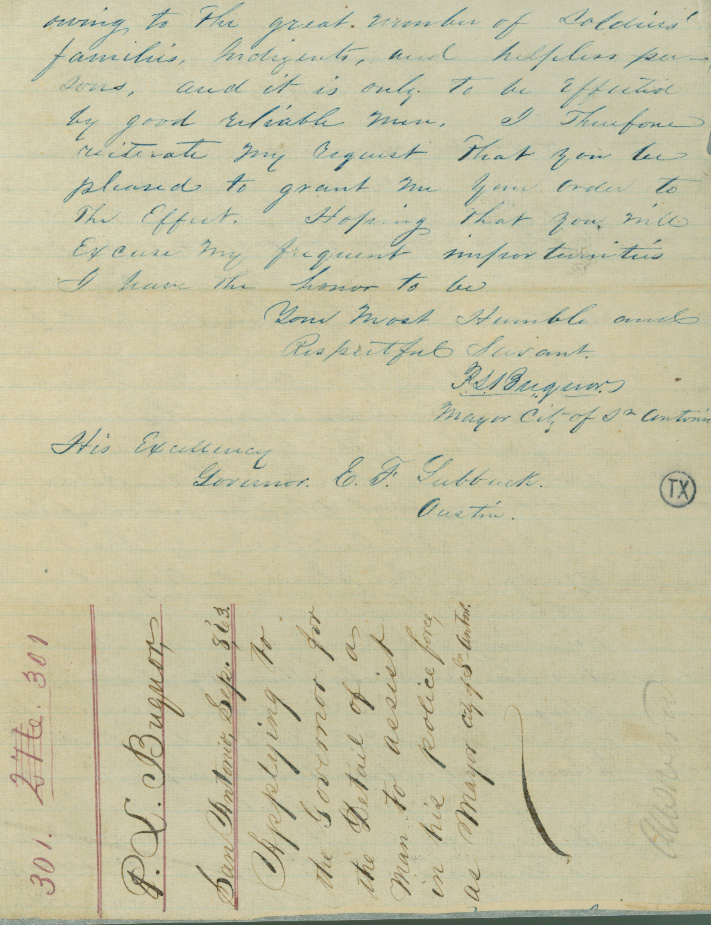 owing to the great number of Soldiers'
families, Indigents, and helpless per-
sons, and it is only to be Effected
by good reliable men. I Therefore
reiterate my request that you be
pleased to grant me your order to
the Effect. Hoping that you will
Excuse my frequent importunities
I have the honor to be
Your Most Humble and
Respectful Servant.
P. L. Buquor
Mayor City of Sn Antonio
His Excellency
Governor. E. F. Lubbuck.
Austin.
TX
301. 276. 301
P. L. Buquor,
San Antonio, Sep. 3, 63.
Applying to
the Governor for
the Detail of a
Man to assist
in his police force,
as Mayor cy of Sn Anto.
Answered